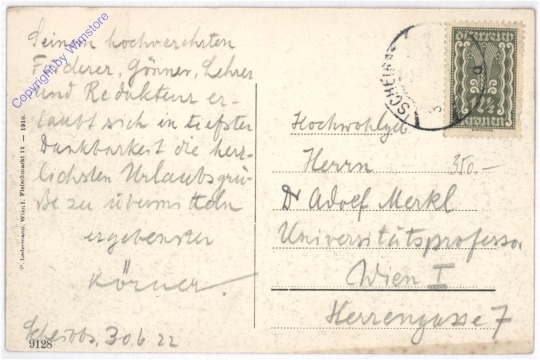 Seinem hochverehrten
Förderer, Gönner, Lehrer
und Redakteur er-
laubt sich in tiefster
Dankbarkeit die herz-
lichsten Urlaubsgrü-
ße zu übermitteln
ergebenster
Körner.
Scheibbs, 30.6.22
9128
P. Ledermann, Wien I, Fleischmarkt 12 — 1916.
Copyright by Wienstore
SCHEIBBS
Österreich
Kronen
Hochwohlgeb
Herrn 350.-
Dr Adolf Merkl
Universitätsprofessor
Wien I
Herrengasse 7